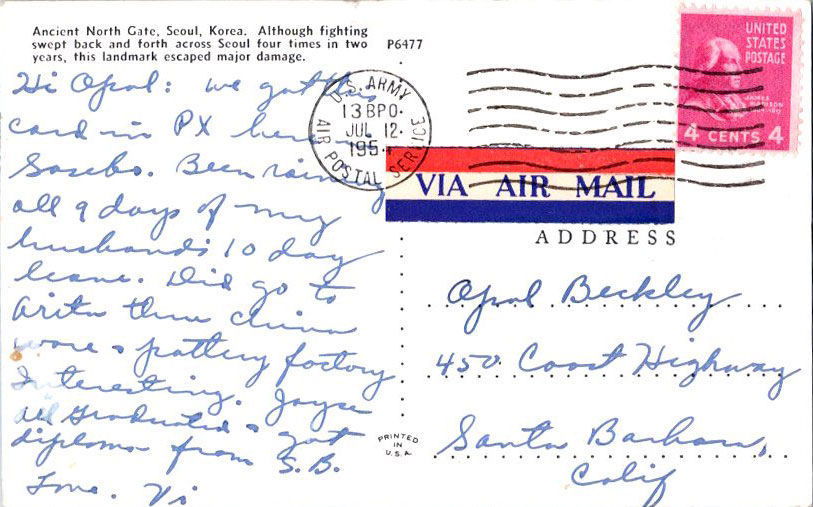 Ancient North Gate, Seoul, Korea. Although fighting
swept back and forth across Seoul four times in two
years, this landmark escaped major damage.
P6477
Hi Opal: We got this
card in PX here
Sasebo. Been raining
all 9 days of my
husbands 10 day
leave. Did go to
Arita thru china
ware & pottery factory
Interesting. Joyce
all graduated & got
diploma from S.B.
Love. Vi
U.S. ARMY
13 BPO.
JUL 12.
195
AIR POSTAL SERVICE
UNITED
STATES
POSTAGE
JAMES
MADISON
4 CENTS 4
VIA AIR MAIL
ADDRESS
Opal Beckley
450 Coast Highway
Santa Barbara,
Calif
PRINTED
IN
U.S.A.